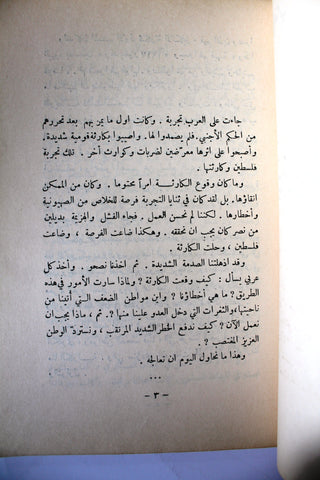 جاءت على العرب تجربة . وكانت اول ما يمرّ بهم بعد تحررهم
من الحكم الأجنبي . فلم يصمدوا لها . واصيبوا بكارثة قومية شديدة .
وأصبحوا على اثرها معرّضين لضربات وكوارث أخر . تلك تجربة
فلسطين وكارثتها .
وما كان وقوع الكارثة امراً محتوماً . وكان من الممكن
اتقاؤها . بل لقد كان في ثنايا التجربة فرصة للخلاص من الصهيونية
وأخطارها . لكننا لم نحسن العمل . فجاء الفشل والهزيمة بديلين
من نصر كان يجب ان نحققه . وهكذا ضاعت الفرصة ، وضاعت
فلسطين ، وحلت الكارثة .
وقد اذهلتنا الصدمة الشديدة . ثم اخذنا نصحو . وأخذ كل
عربي يسأل : كيف وقعت الكارثة ؟ ولماذا سارت الأمور في هذه
الطريق ؟ ما هي أخطاؤنا ؟ واين مواطن الضعف التي أتينا من
ناحيتها ، والثغرات التي دخل العدو علينا منها ؟ . ثم ، ماذا يجب ان
نعمل الآن ؟ كيف ندفع الخطر الشديد المرتقب ، ونستردّ الوطن
العزيز المغتصب ؟ .
وهذا ما نحاول اليوم ان نعالجه .
...
- ٣ -